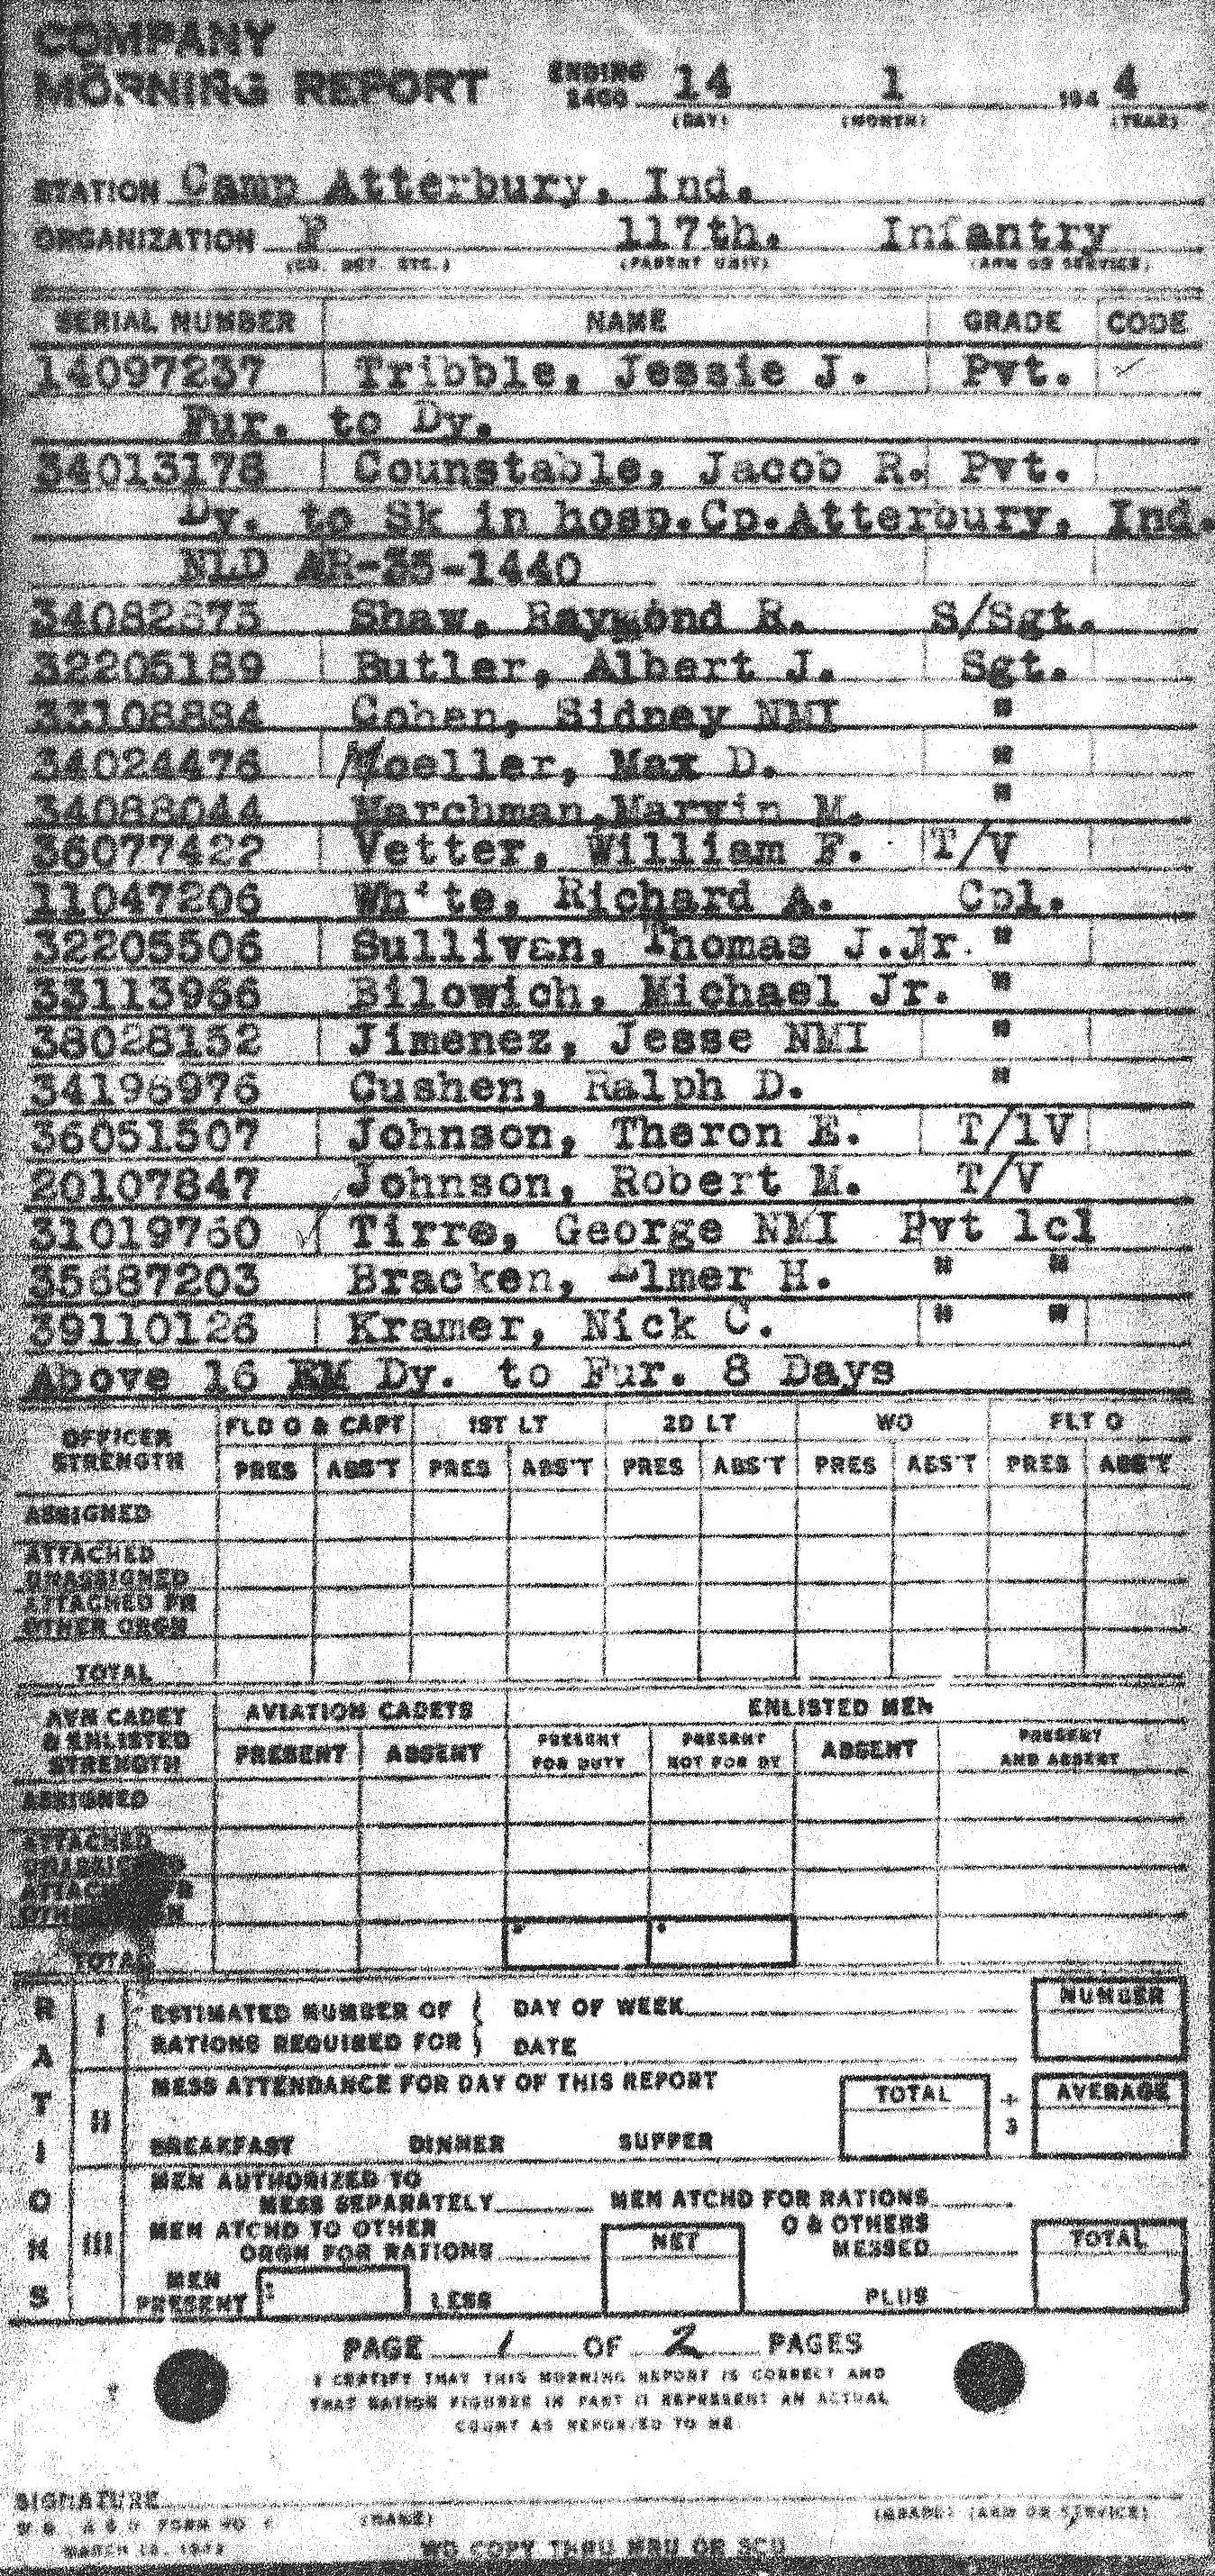 COMPANY
MORNING REPORT ENDING 2400 14 1 194 4
(DAY) (MONTH) (YEAR)
STATION Camp Atterbury, Ind.
ORGANIZATION F 117th. Infantry
(CO. DET. ETC.) (PARENT UNIT) (ARM OR SERVICE)
SERIAL NUMBER NAME GRADE CODE
14097237 Tribble, Jessie J. Pvt. ✓
Fur. to Dy.
34013178 Counstable, Jacob R. Pvt.
Dy. to Sk in hosp.Cp.Atterbury, Ind.
NLD AR-35-1440
34082875 Shaw, Raymond R. S/Sgt.
32205189 Butler, Albert J. Sgt.
33108884 Cohen, Sidney NMI "
34024476 Moeller, Max D. "
34088044 Marchman,Marvin M. "
36077422 Vetter, William F. T/V
11047206 White, Richard A. Cpl.
32205506 Sullivan, Thomas J.Jr. "
33113966 Bilowich, Michael Jr. "
38028152 Jimenez, Jesse NMI "
34196976 Cushen, Ralph D. "
36051507 Johnson, Theron E. T/1V
20107847 Johnson, Robert M. T/V
31019760 ✓ Tirro, George NMI Pvt 1cl
35687203 Bracken, Elmer H. " "
39110126 Kramer, Nick C. " "
Above 16 EM Dy. to Fur. 8 Days
OFFICER STRENGTH FLD O & CAPT 1ST LT 2D LT WO FLT O
PRES ABS'T PRES ABS'T PRES ABS'T PRES ABS'T PRES ABS'T
ASSIGNED
ATTACHED
UNASSIGNED
ATTACHED FR
OTHER ORGN
TOTAL
AVN CADET & ENLISTED STRENGTH AVIATION CADETS ENLISTED MEN
PRESENT ABSENT PRESENT FOR DUTY PRESENT NOT FOR DY ABSENT PRESENT AND ABSENT
ASSIGNED
ATTACHED
UNASSIGNED
ATTACHED FR
OTHER ORGN
TOTAL
RATIONS
I ESTIMATED NUMBER OF DAY OF WEEK NUMBER
RATIONS REQUIRED FOR DATE
II MESS ATTENDANCE FOR DAY OF THIS REPORT TOTAL ÷ 3 AVERAGE
BREAKFAST DINNER SUPPER
III MEN AUTHORIZED TO
MESS SEPARATELY MEN ATCHD FOR RATIONS
MEN ATCHD TO OTHER
ORGN FOR RATIONS NET O & OTHERS MESSED TOTAL
MEN PRESENT LESS PLUS
PAGE 1 OF 2 PAGES
I CERTIFY THAT THIS MORNING REPORT IS CORRECT AND
THAT RATION FIGURES IN PART II REPRESENT AN ACTUAL
COUNT AS REPORTED TO ME
SIGNATURE
(NAME) (GRADE) (ARM OR SERVICE)
W D A G O FORM NO 1
WD COPY THRU MRU OR SCU